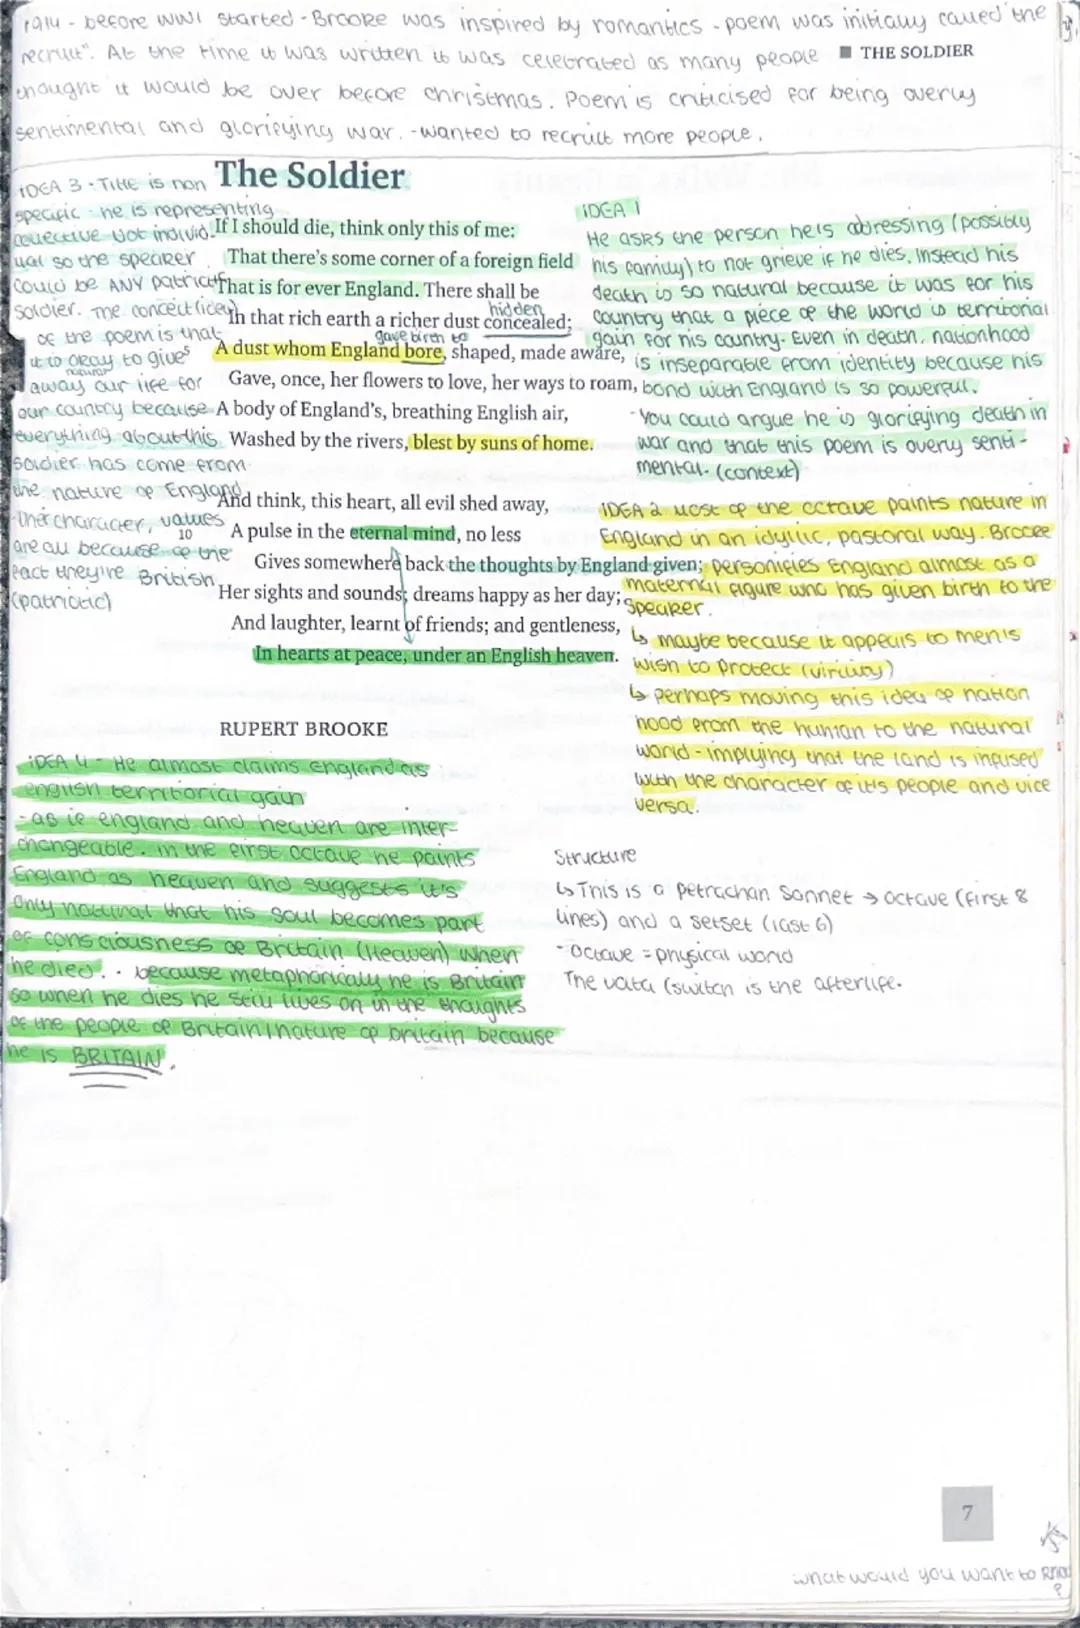 1914 - before WW1 started - Brooke was inspired by romantics - poem was initially called "the
recruit". At the time it was written it was celebrated as many people
■ THE SOLDIER
thought it would be over before christmas. Poem is criticised for being overly
sentimental and glorifying war. - wanted to recruit more people.
The Soldier
IDEA 3 - Title is non
specific he is representing
collective not individ-
ual so the speaker
could be ANY patriotic
soldier. The conceit (idea)
of the poem is that
it is okay to give
natural
away our life for
our country because
everything about this
soldier has come from
the nature of England
- their character, values
are all because of the
fact they're British
(patriotic)
If I should die, think only this of me:
That there's some corner of a foreign field
That is for ever England. There shall be
hidden
In that rich earth a richer dust concealed;
gave birth to
5
A dust whom England bore, shaped, made aware,
Gave, once, her flowers to love, her ways to roam,
A body of England's, breathing English air,
Washed by the rivers, blest by suns of home.
And think, this heart, all evil shed away,
10
A pulse in the eternal mind, no less
Gives somewhere back the thoughts by England given;
Her sights and sounds; dreams happy as her day;
And laughter, learnt of friends; and gentleness,
In hearts at peace, under an English heaven.
RUPERT BROOKE
IDEA 1
He asks the person he is adressing (possibly
his family) to not grieve if he dies. Instead his
death is so natural because it was for his
country that a piece of the world is territorial
gain for his country. Even in death, nationhood
is inseparable from identity because his
bond with England is so powerful.
- You could argue he is glorifying death in
war and that this poem is overly senti-
mental. (context)
IDEA 2 Most of the octave paints nature in
England in an idyllic, pastoral way. Brooke
personifies England almost as a
maternal figure who has given birth to the
speaker.
↳ maybe because it appears to men's
wish to protect (virility)
↳ perhaps moving this idea of nation
hood from the human to the natural
world - implying that the land is infused
with the character of it's people and vice
versa.
IDEA 4 - He almost claims England as
english territorial gain
- as if england and heaven are inter-
changeable. In the first octave he paints
England as heaven and suggests it's
only natural that his soul becomes part
of consciousness of Britain (Heaven) when
he died. . because metaphorically he is Britain
so when he dies he still lives on in the thoughts
of the people of Britain/nature of britain because
he is BRITAIN.
Structure
↳ This is a petrachan sonnet → octave (first 8
lines) and a setset (last 6)
- octave = physical world
The volta (switch is the afterlife.
7
what would you want to know
?